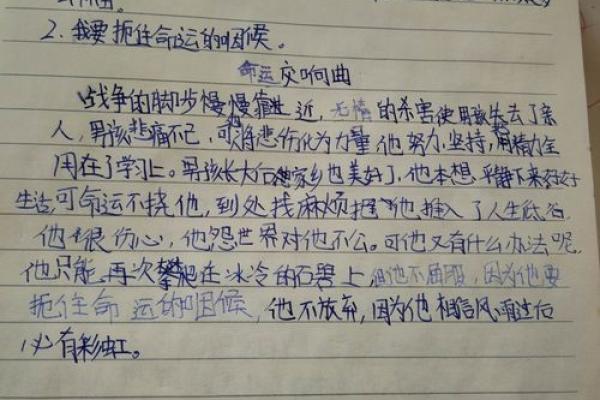 2. 我要扼住命运的咽候。
命运交响曲
战争的脚步慢慢靠近,无情的杀害使男孩失去了亲
人,男孩悲痛不已,可将悲伤化为力量他努力,坚持,用精力全
用在了学习上。男孩长大后家乡也美好了,他本想平静下来好好
生活,可命运不挠他,到处找麻烦 他 入了人生低谷
他很伤心,他怨世界对他不公。可他又有什么办法呢,
他只能再次攀爬在冰冷的石壁上,但他不屈服,因为他要
扼住命运的咽候,他不放弃,因为他相信风雨过后
必有彩虹。